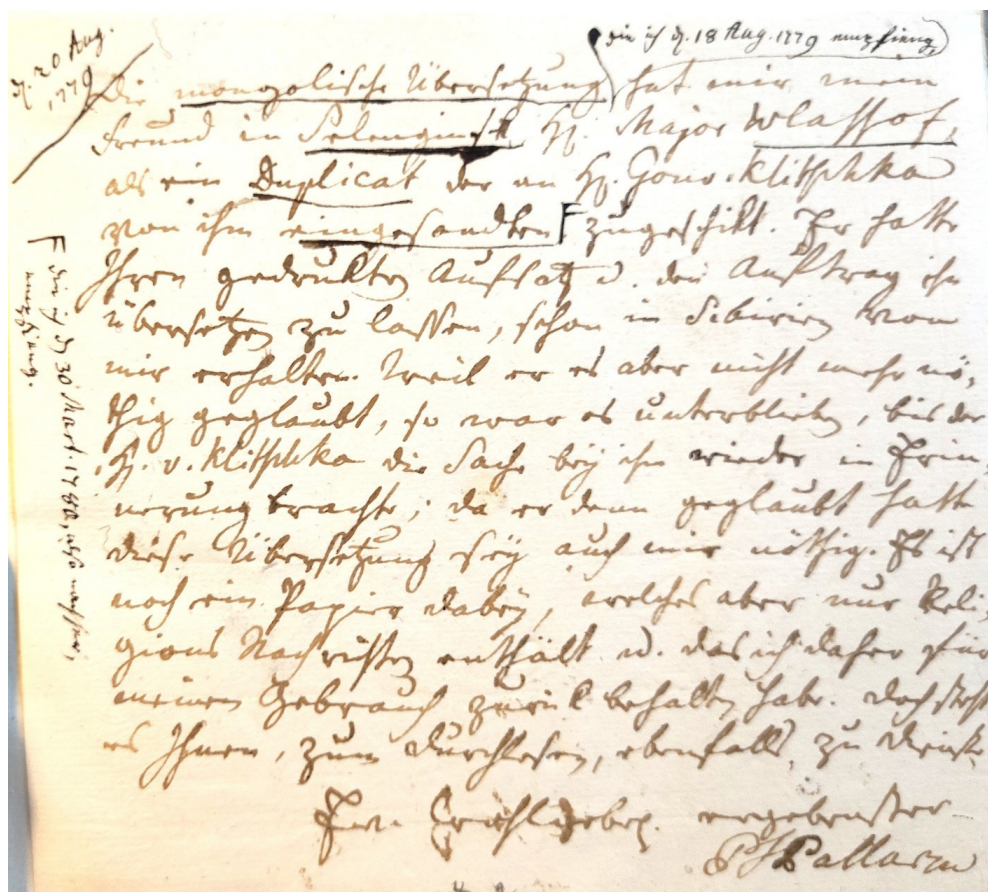 d. 20 Aug.
1779
die ich d. 18 Aug. 1779 empfieng
Die mongolische Übersetzung hat mir mein
Freund in Selenginsk H. Major Wlassof,
als ein Duplicat der an H. Gouv. Klitschka
von ihm eingesandten F zugeschikt. Er hatte
Ihren gedrukten Aufsatz u. den Auftrag ihn
übersetzen zu lassen, schon in Sibirien von
mir erhalten. Weil er es aber nicht mehr nö-
thig geglaubt, so war es unterblieben, bis der
H. v. Klitschka die Sache bey ihm wieder in Erin-
nerung brachte; da er denn geglaubt hatte
diese Übersetzung sey auch mir nöthig. Es ist
noch ein Papier dabey, welches aber nur Reli-
gions Nachrichten enthält u. das ich daher für
meinen Gebrauch zurük behalten habe. Doch steht
es Ihnen, zum Durchlesen, ebenfalls zu Dienste.
Ew. ergebenster
PSPallas
F die ich d 30 Mart 1780,
empfieng.